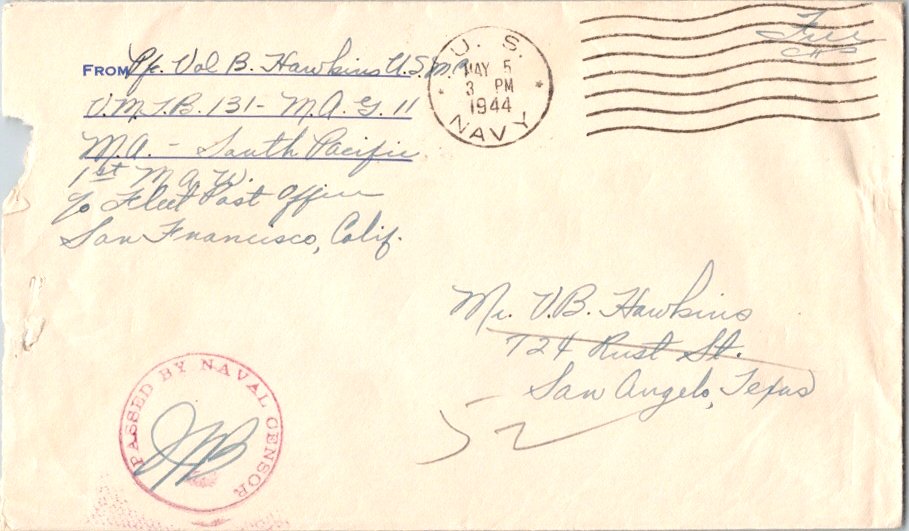 FROM Pfc. Val B. Hawkins U.S.M.C.
V.M.T.B. 131 - M.A.G. 11
M.A. - South Pacific
1st M.A.W.
c/o Fleet Post Office
San Francisco, Calif.
U. S.
MAY 5
3 PM
1944
NAVY
Free
Mr. V.B. Hawkins
724 Rust St.
San Angelo, Texas
52
PASSED BY NAVAL CENSOR